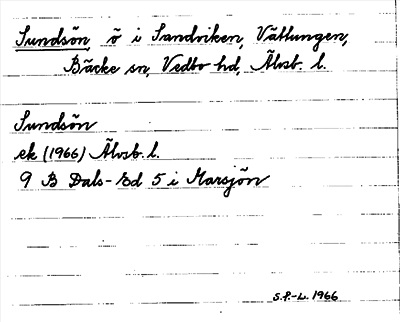 Sundsön, ö i Sandviken, Vättungen,
Bäcke sn, Vedbo hd, Älvsb. l.
Sundsön
ek (1966) Älvsb. l.
9 B Dals-Ed 5 i Marsjön
S.P.-L. 1966